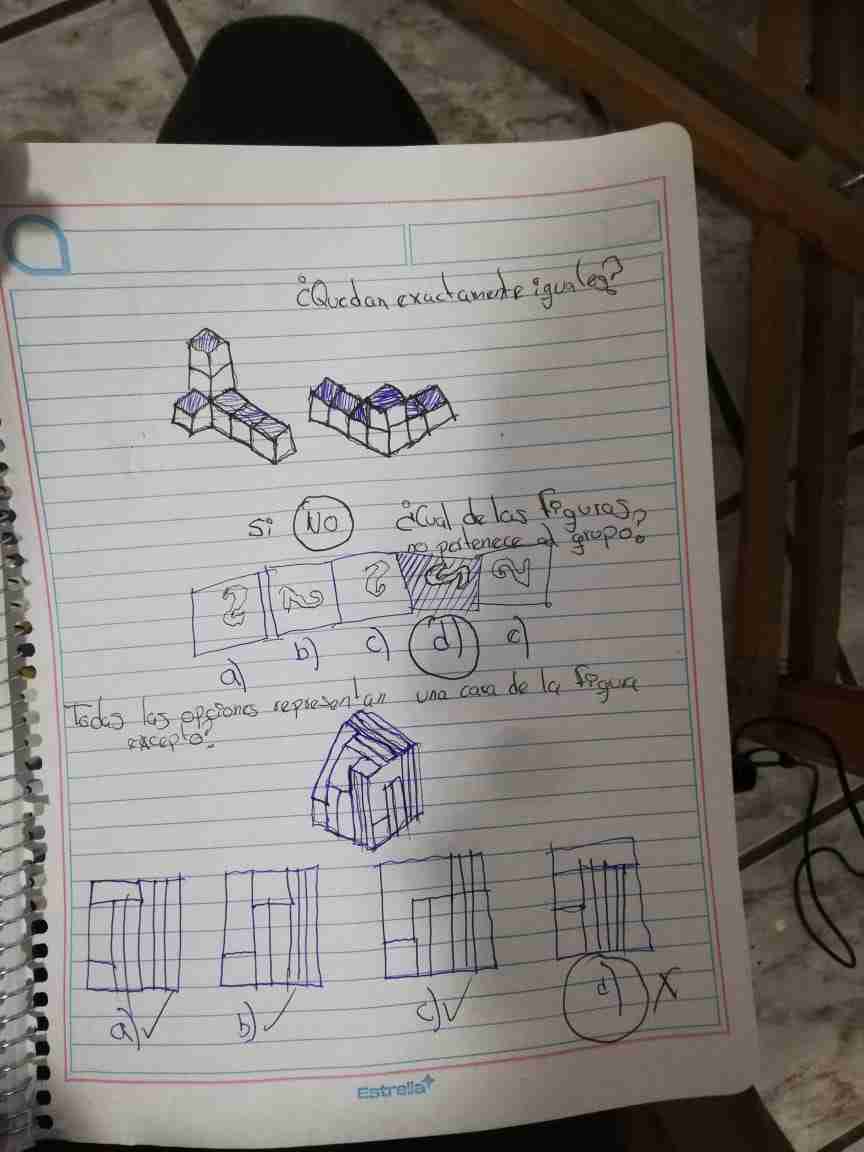 ¿Quedan exactamente iguales?
Si NO ¿Cual de las figuras
no pertenece al grupo?
a) b) c) d) e)
Todas las opciones representan una cara de la figura
excepto:
a) ✓ b) ✓ c) ✓ d) X
Estrella